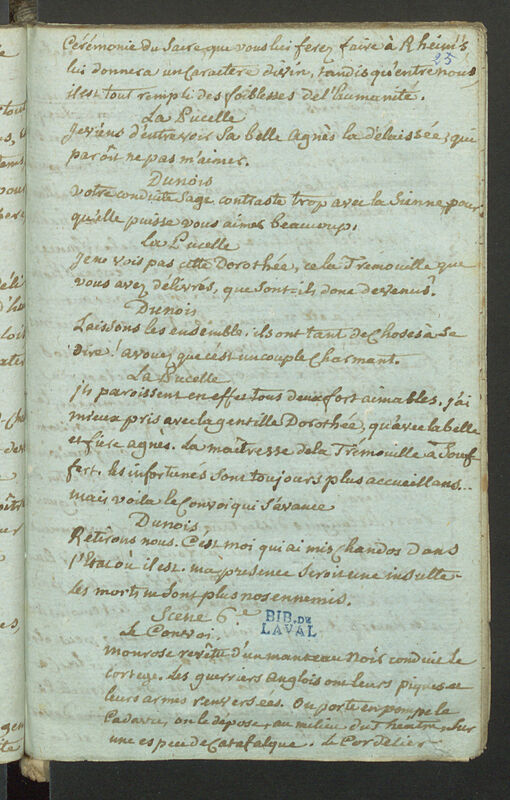 Cérémonie du Sacre que vous lui ferez faire à Rheims,
25
lui donnera un caractere divin, tandis qu'entre nous,
il est tout rempli des foiblesses de l'humanité.
La Pucelle
Je viens d'entrevoir Sa belle Agnès la délaissée; qui
paroît ne pas m'aimer.
Dunois
votre conduite Sage contraste trop avec la Sienne, pour
qu'elle puisse vous aimer beaucoup.
La Pucelle
Je ne vois pas cette Dorothée, ce la Trémouille que
vous avez délivrés, que Sont-ils donc devenus?
Dunois
Laissons les ensemble. ils ont tant de Choses à Se
dire! avouez que c'est un couple Charmant.
La Pucelle
ils paroissent en effet tous deux fort aimables. j'ai
mieux pris avec la gentille Dorothée, qu'avec la belle
et fiere agnès. La maîtresse de la Trémouille a Souf-
fert. les infortunés Sont toujours plus accueillans...
mais voila le Convoi qui S'avance
Dunois
Retirons nous. C'est moi qui ai mis Chandos Dans
l'Etat où il est. ma presence Seroit une insulte.
les morts ne Sont plus nos ennemis.
Scene 6e
BIB. DE
LAVAL
Le Convoi.
monrose revêtu d'un manteau Noir conduit le
cortege. Les guerriers anglois ont leurs piques et
leurs armes renversées. On porte en pompe le
Cadavre, on le depose au milieu du Theatre, Sur
une espece de Catafalque. le Cordelier